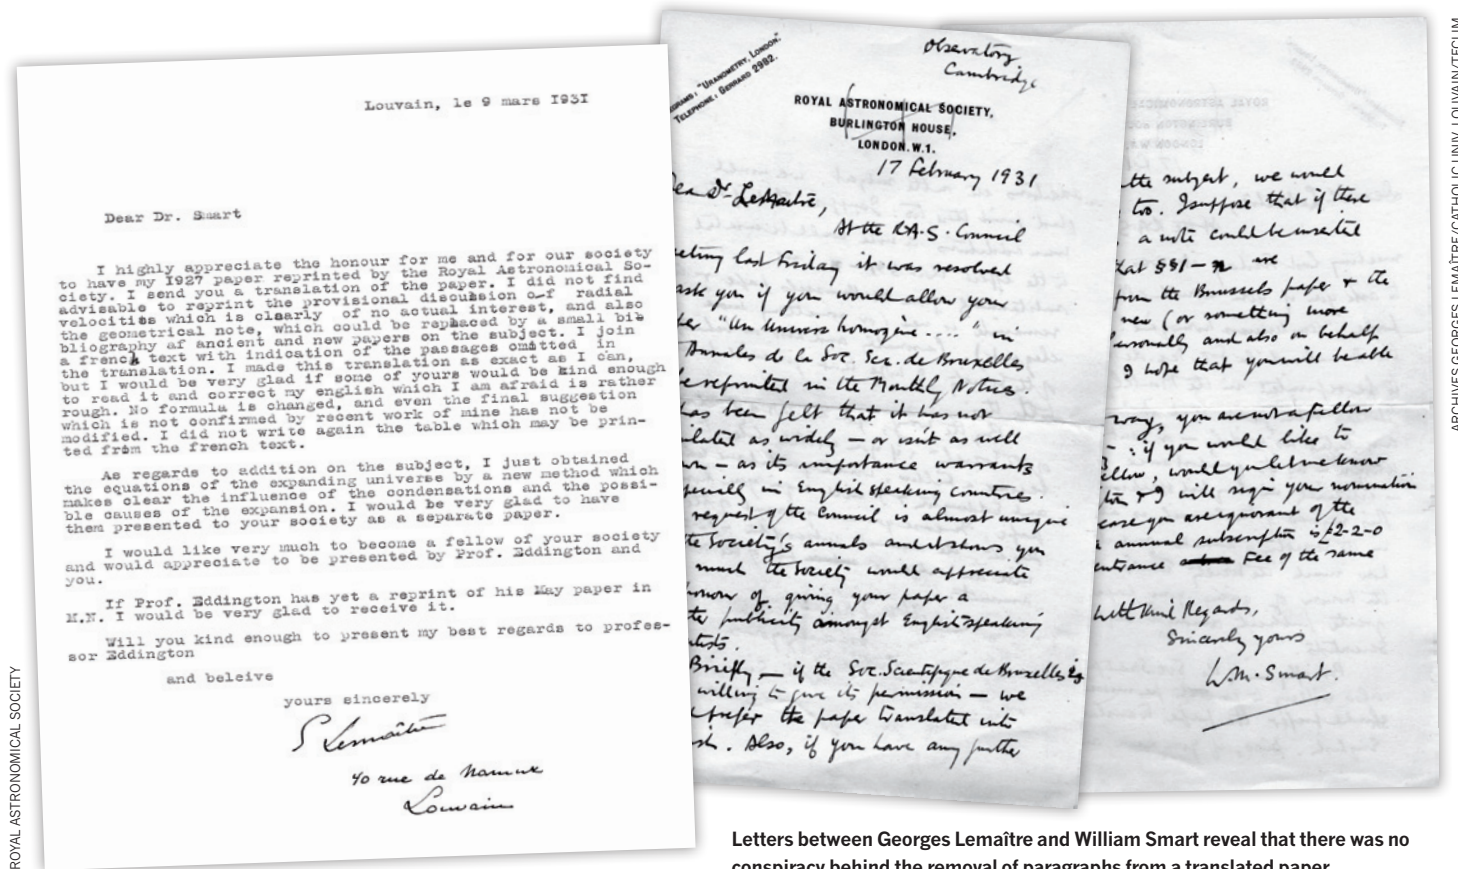 Louvain, le 9 mars 1931
Dear Dr. Smart
I highly appreciate the honour for me and for our society
to have my 1927 paper reprinted by the Royal Astronomical So-
ciety. I send you a translation of the paper. I did not find
advisable to reprint the provisional discussion of radial
velocities which is clearly of no actual interest, and also
the geometrical note, which could be replaced by a small bi-
bliography of ancient and new papers on the subject. I join
a french text with indication of the passages omitted in
the translation. I made this translation as exact as I can,
but I would be very glad if some of yours would be kind enough
to read it and correct my english which I am afraid is rather
rough. No formula is changed, and even the final suggestion
which is not confirmed by recent work of mine has not be
modified. I did not write again the table which may be prin-
ted from the french text.
As regards to addition on the subject, I just obtained
the equations of the expanding universe by a new method which
makes clear the influence of the condensations and the possi-
ble causes of the expansion. I would be very glad to have
them presented to your society as a separate paper.
I would like very much to become a fellow of your society
and would appreciate to be presented by Prof. Eddington and
you.
If Prof. Eddington has yet a reprint of his May paper in
M.N. I would be very glad to receive it.
Will you kind enough to present my best regards to profes-
sor Eddington
and beleive
yours sincerely
G Lemaître
40 rue de Namur
Louvain
ROYAL ASTRONOMICAL SOCIETY
GRAMS: "URANOMETRY, LONDON."
TELEPHONE: GERRARD 2982.
Observatory
Cambridge
ROYAL ASTRONOMICAL SOCIETY,
BURLINGTON HOUSE,
LONDON.W.1.
17 February 1931
Dear Dr Lemaître,
At the R.A.S. Council
eting last Friday it was resolved
ask you if you would allow your
"Un Univers homogène...." in
Annales de la Soc. Sci. de Bruxelles
be reprinted in the Monthly Notices.
has been felt that it has not
ulated as widely — or isn't as well
wn — as its importance warrants
pecially in English speaking countries.
request of the Council is almost unique
the Society's annals and it shows you
much the Society would appreciate
honour of giving your paper a
publicity amongst English speaking
ntists.
Briefly — if the Soc. Scientifique de Bruxelles is
willing to give its permission — we
prefer the paper translated into
sh. Also, if you have any further
the subject, we would
too. I suppose that if there
a note could be inserted
that §§1—n are
from the Brussels paper & the
new (or something more
ersonally and also on behalf
I hope that you will be able
way, you are not a fellow
if you would like to
ellow, would you let me know
ton & I will sign your nomination
case you are ignorant of the
annual subscription is £2-2-0
entrance Fee of the same
With kind Regards,
Sincerely yours
W.M. Smart.
ARCHIVES GEORGES LEMAÎTRE/CATHOLIC UNIV. LOUVAIN/TECLIM
Letters between Georges Lemaître and William Smart reveal that there was no
conspiracy behind the removal of paragraphs from a translated paper.